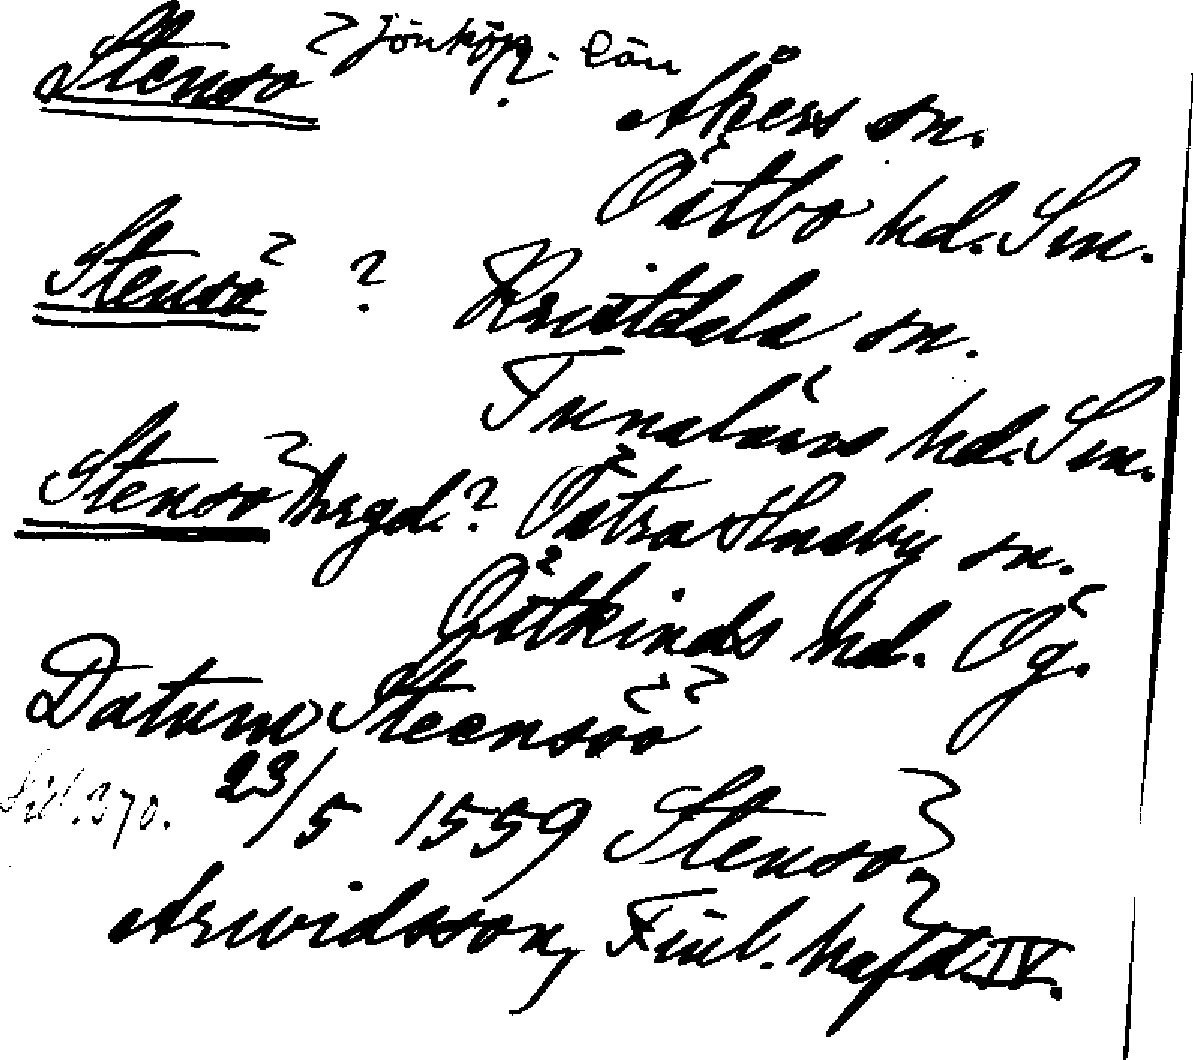 Stensö ? Jönköp. län
Åkers sn.
Östbo hd. Sm.
Stensö ? Kristdala sn.
Tunaläns hd. Sm.
Stensö hrgd. ? Östra Husby sn.
Östkinds hd. Ög.
Datum Steensöö
Sid. 370. 23/5 1559 Stensö,
Arwidsson, Finl. häfd. IV.